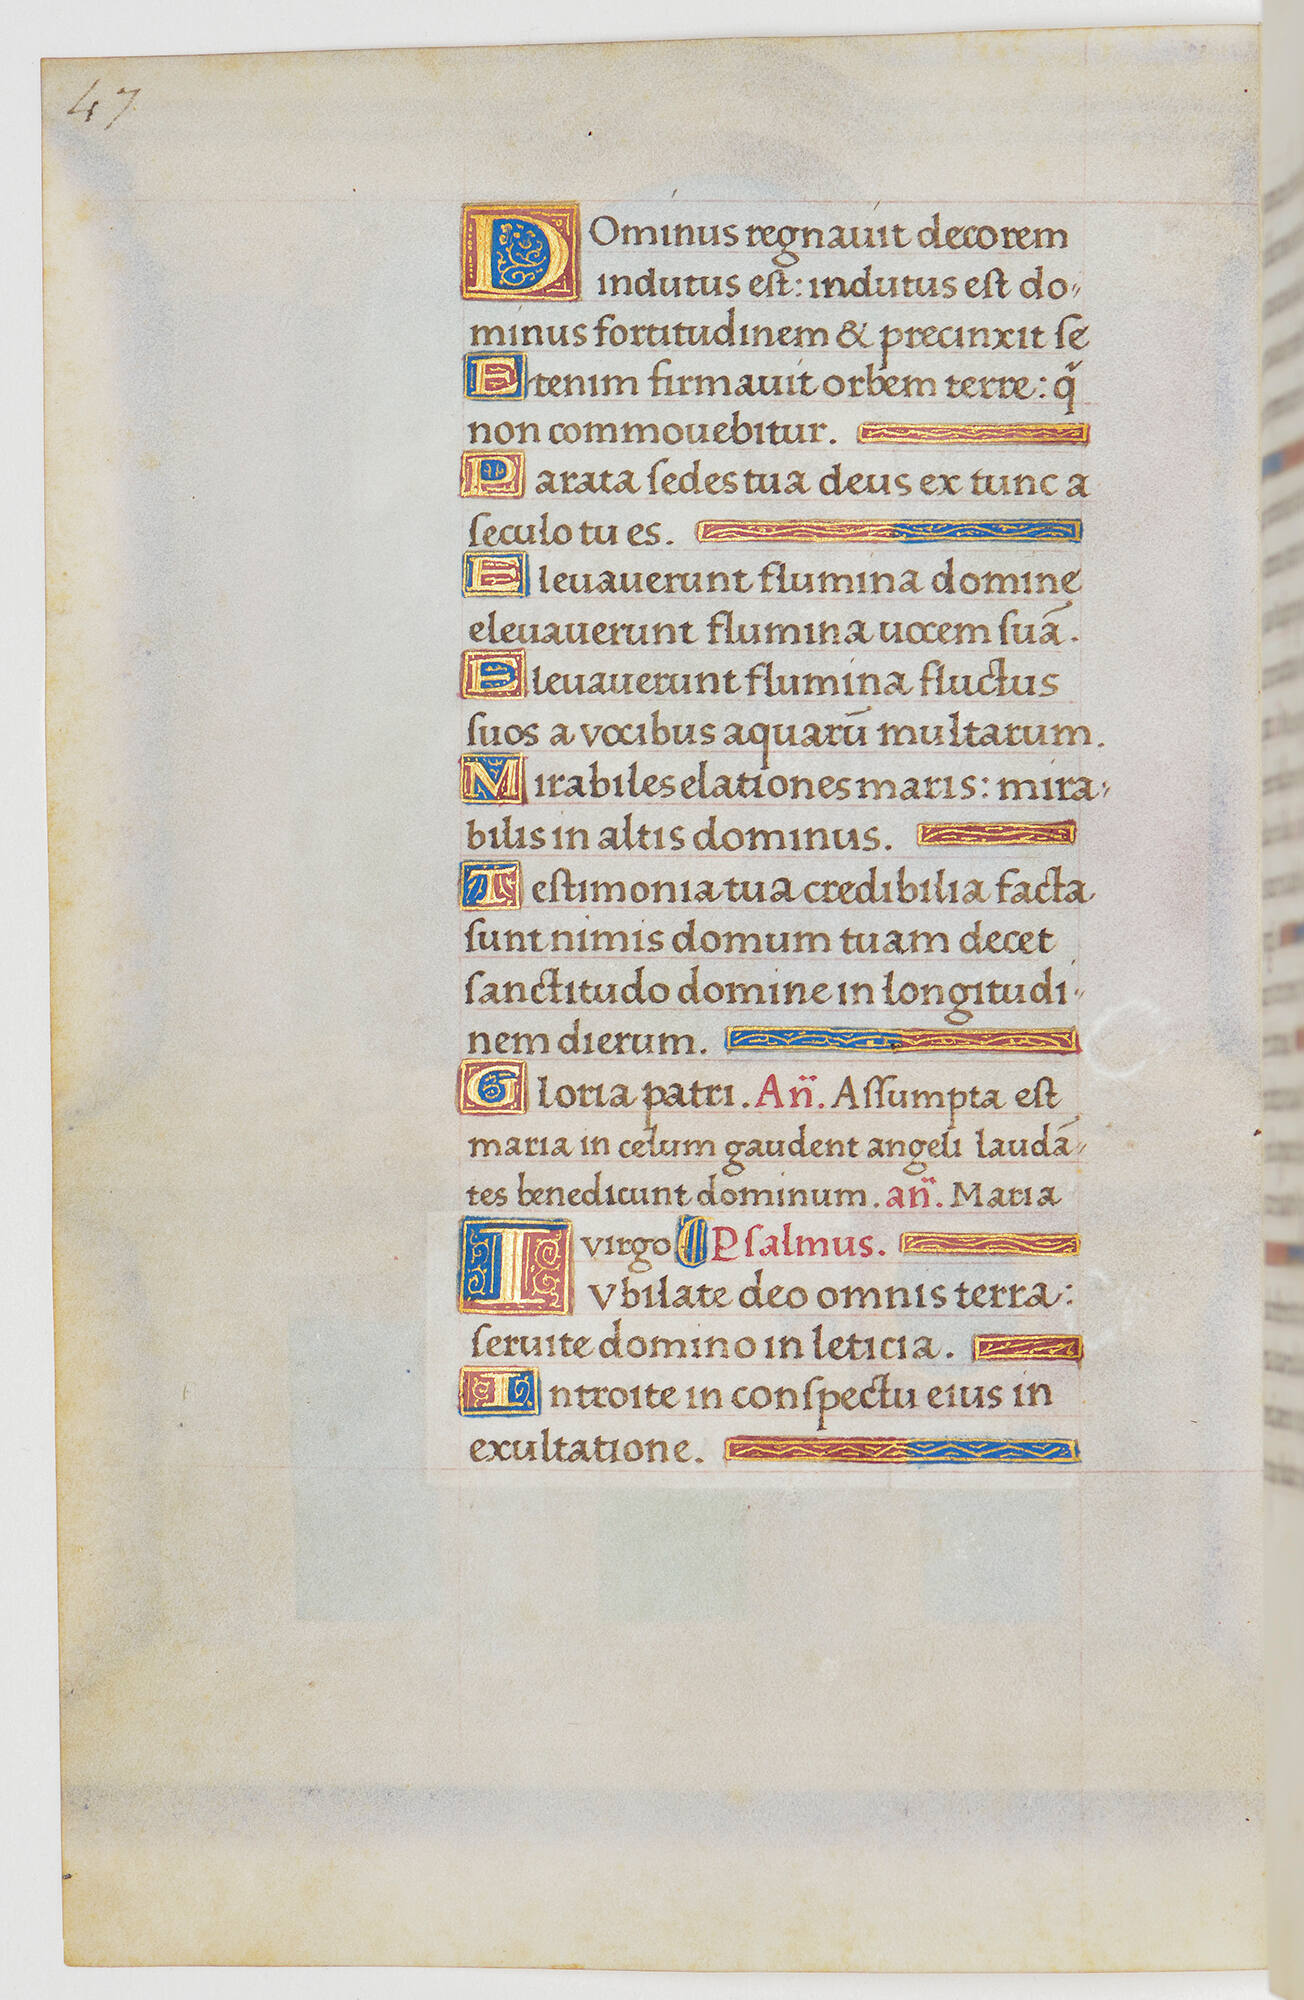 47
DOminus regnauit decorem
indutus est: indutus est do⸗
minus fortitudinem & precinxit se
Etenim firmauit orbem terre: q̃
non commouebitur.
Parata sedes tua deus ex tunc a
seculo tu es.
Eleuauerunt flumina domine
eleuauerunt flumina uocem suã.
Eleuauerunt flumina fluctus
suos a vocibus aquarū multarum.
Mirabiles elationes maris: mira⸗
bilis in altis dominus.
Testimonia tua credibilia facta
sunt nimis domum tuam decet
sanctitudo domine in longitudi⸗
nem dierum.
Gloria patri. An̈. Assumpta est
maria in celum gaudent angeli laudā⸗
tes benedicunt dominum. an̈. Maria
virgo Psalmus.
IVbilate deo omnis terra:
seruite domino in leticia.
Introite in conspectu eius in
exultatione.